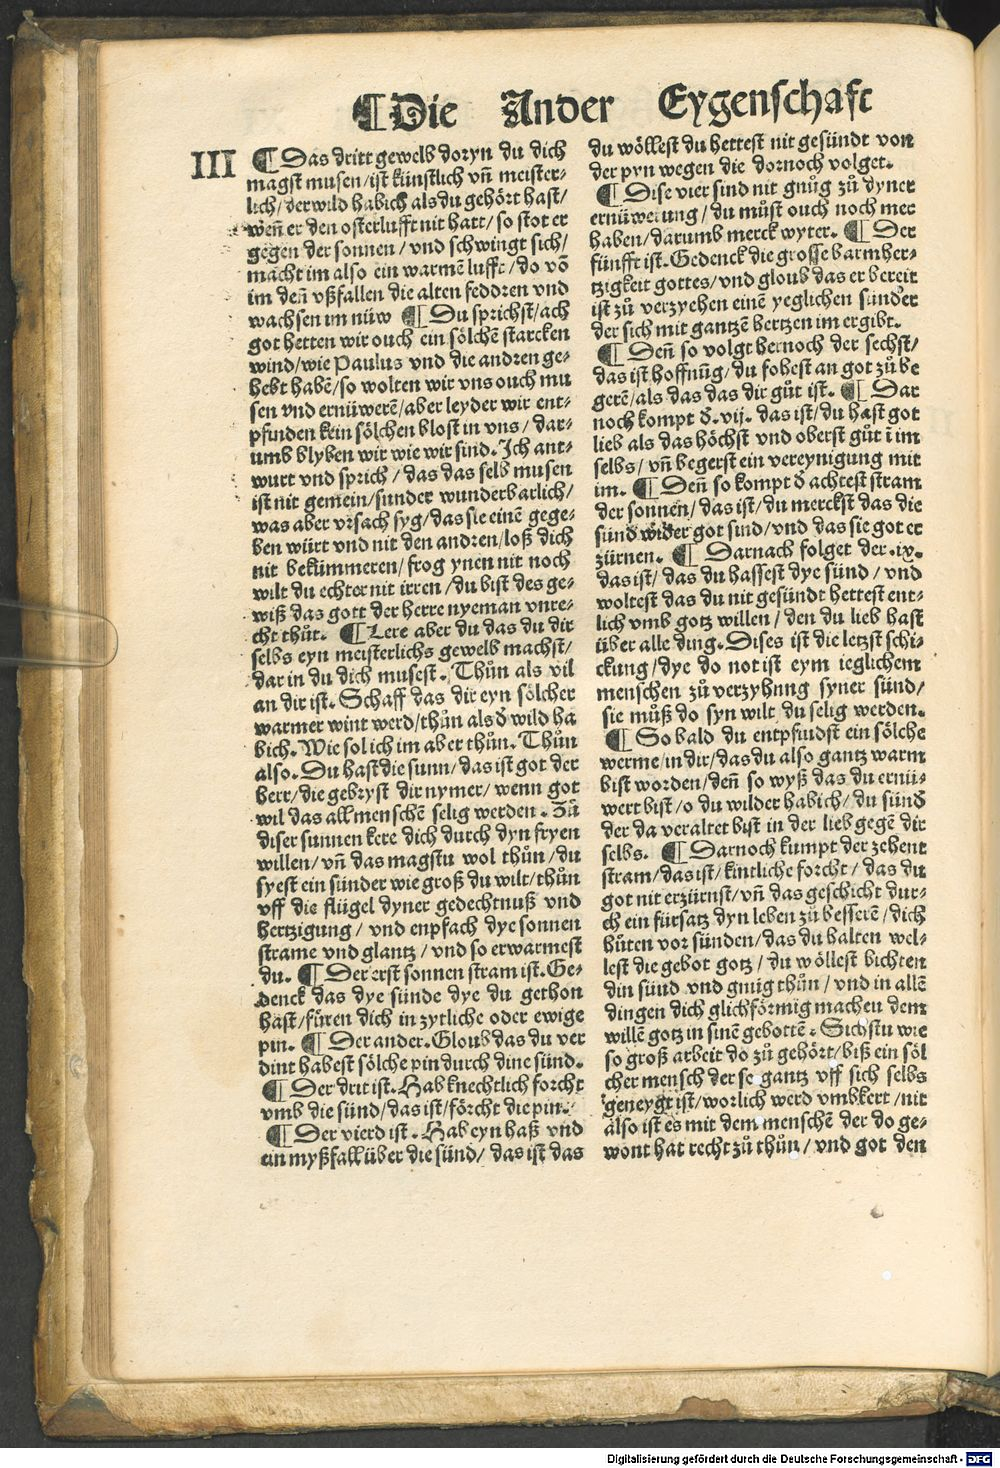 ¶Die Ander Eygenschafft
III
¶ Das dritt gewelb doryn du dich
magst musen/ist künstlich vn̄ meister-
lich/der wild habich als du gehört hast/
wen̄ er den osterlufft nit hatt/so stot er
gegen der sonnen/vnd schwingt sich/
macht im also ein warmē lufft/do vō
im den̄ vßfallen die alten feddren vnd
wachsen im nüw ¶ Du sprichst/ach
got hetten wir ouch ein sölchē starcken
wind/wie Paulus vnd die andren ge-
hebt habē/so wolten wir vns ouch mu
sen vnd ernüwerē/aber leyder wir ent-
pfinden kein sölchen blost in vns/dar-
umb blyben wir wie wir sind. Ich ant-
wurt vnd sprich/das das selb musen
ist nit gemein/sunder wunderbarlich/
was aber vrsach syg/das sie einē gege-
ben würt vnd nit den andren/loß dich
nit bekümmeren/frog ynen nit noch
wilt du echter nit irren/du bist des ge-
wiß das gott der herre nyeman vnre-
cht thůt. ¶ Lere aber du das du dir
selbs eyn meisterlichs gewelb machst/
dar in du dich musest. Thůn als vil
an dir ist. Schaff das dir eyn sölcher
warmer wint werd/thůn als d̄ wild ha
bich. Wie sol ich im aber thůn. Thůn
also. Du hast die sunn/das ist got der
herr/die gebryst dir nymer/wenn got
wil das all menschē selig werden. Zů
diser sunnen kere dich durch dyn fryen
willen/vn̄ das magstu wol thůn/du
syest ein sünder wie groß du wilt/thůn
vff die flügel dyner gedechtnuß vnd
hertzigung/vnd enpfach dye sonnen
strame vnd glantz/vnd so erwarmest
du. ¶ Der erst sonnen stram ist. Ge-
denck das dye sünde dye du gethon
hast/füren dich in zytliche oder ewige
pin. ¶ Der ander. Gloub das du ver
dint habest sölche pin durch dine sünd.
¶ Der drit ist. Hab knechtlich forcht
vmb die sünd/das ist/förcht die pin.
¶ Der vierd ist. Hab eyn haß vnd
ein myßfall über die sünd/das ist das
du wöllest du hettest nit gesündt von
der pyn wegen die dornoch volget.
¶ Dise vier sind nit gnůg zů dyner
ernüwerung/du můst ouch noch mer
haben/darumb merck wyter. ¶ Der
fünfft ist. Gedenck die grosse barmher-
tzigkeit gottes/vnd gloub das er bereit
ist zů verzyehen einē yeglichen sünder
der sich mit gantzē hertzen im ergibt.
¶ Den̄ so volgt hernoch der sechst/
das ist hoffnūg/du fohest an got zů be
gerē/als das das dir gůt ist. ¶ Dar
noch kompt d̄.vij. das ist/du hast got
lieb als das höchst vnd oberst gůt ī im
selbs/vn̄ begerst ein vereynigung mit
im. ¶ Den̄ so kompt d̄ achtest stram
der sonnen/das ist/du merckst das die
sünd wider got sind/vnd das sie got er
zürnen. ¶ Darnach folget der.ix.
das ist/das du hassest dye sünd/vnd
woltest das du nit gesündt hettest ent-
lich vmb gotz willen/den du lieb hast
über alle ding. Dises ist die letzst schi-
ckung/dye do not ist eym ieglichem
menschen zů verzyhung syner sünd/
sie můß do syn wilt du selig werden.
¶ So bald du entpfindst ein sölche
werme/in dir/das du also gantz warm
bist worden/den̄ so wyß das du ernü-
wert bist/o du wilder habich/du sünd̄
der da veraltet bist in der lieb gegē dir
selbs. ¶ Darnoch kumpt der zehent
stram/das ist/kintliche forcht/das du
got nit erzürnst/vn̄ das geschicht dur-
ch ein fürsatz dyn leben zů besserē/dich
hüten vor sünden/das du halten wel-
lest die gebot gotz/du wöllest bichten
din sünd vnd gnůg thůn/vnd in allē
dingen dich glichförmig machen dem
willē gotz in sinē gebottē. Sichstu wie
so groß arbeit do zů gehört/biß ein söl
cher mensch der so gantz vff sich selbs
geneygt ist/worlich werd vmbkert/nit
also ist es mit dem menschē der do ge-
wont hat recht zů thůn/vnd got den
Digitalisierung gefördert durch die Deutsche Forschungsgemeinschaft - DFG